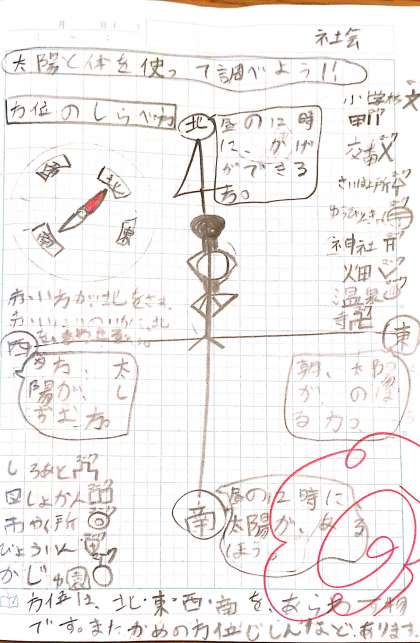 社会
太陽と体を使って調べよう!!
方位のしらべ方
北
昼の12時
に、かげ
ができる
方。
小学校
交番
さいばん所
ゆうびんきょく
神社
畑
温泉
寺
北
東
南
赤い方が北をさす。
西
東
夕方、太
陽が、し
ずむ方。
朝、太陽
が、のぼ
る方。
南
昼の12時に
太陽が、ある
ほう。
しろあと
図しょかん
市やく所
びょういん
かじゅ園
方位は、北・東・西・南を、あらわす物
です。またかめの方位じしんなどあります